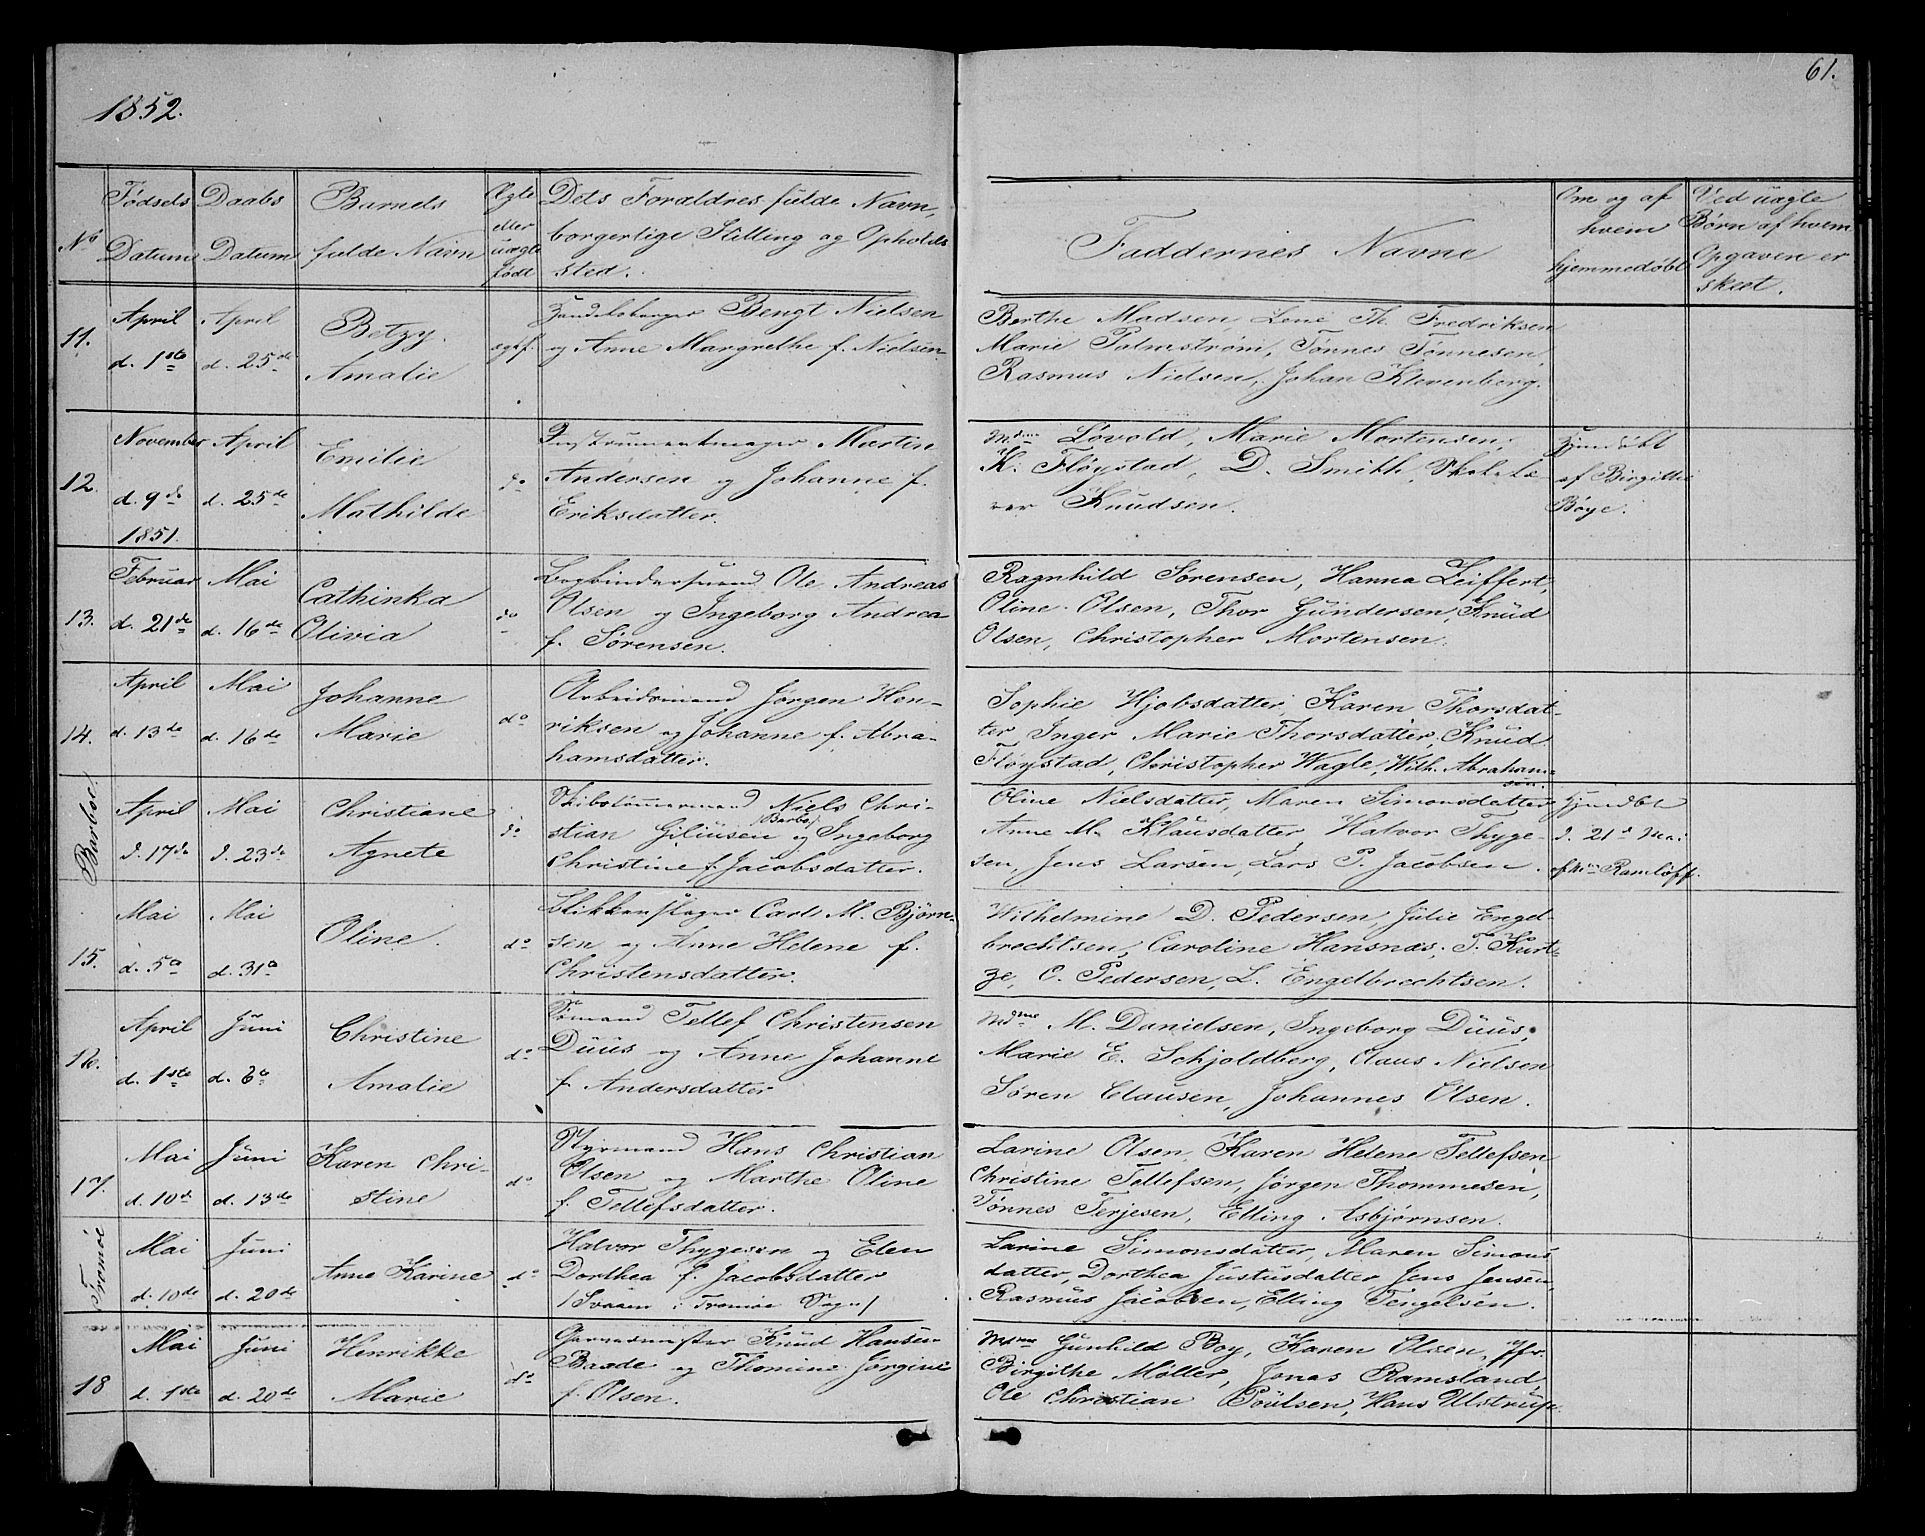 1852.
61.
No
Fødsels Datum
Daabs Datum
Barnets fulde Navn
Ægte eller uægte født
Dets Forældres fulde Navn, borgerlige Stilling og Opholds sted.
Faddernes Navne
Om og af hvem hjemmedøbt
Ved uægte Børn af hvem Opgaven er skeet.
11.
April d. 1ste
April d. 25de
Betzy. Amalie
ægtef.
Handelsborger Bengt Nielsen
og Anne Margrethe f. Nielsen
Berthe Madsen, Lene Th. Fredriksen
Marie Palmstrøm, Tønnes Tønnesen,
Rasmus Nielsen, Johan Klevenberg.
12.
November d. 9de 1851.
April d. 25de
Emilie Mathilde
do
Instrumentmager Martin
Andersen og Johanne f.
Eriksdatter.
Mdme Løvold, Marie Mortensen,
K. Fløystad, D. Smith, Skole Læ
rer Knudsen.
Hjemdøbt
af Birgitte
Bøye.
13.
Februar d. 21de
Mai d. 16de
Cathinka Olivia
do
Bogbindersvend Ole Andreas
Olsen og Ingeborg Andrea
f. Sørensen.
Ragnhild Sørensen, Hanna Zeiffert,
Oline Olsen, Thor Gundersen, Knud
Olsen, Christopher Mortensen.
14.
April d. 13de
Mai d. 16de
Johanne Marie
do
Arbeidsmand Jørgen Hen-
riksen og Johanne f. Abra-
hamsdatter.
Sophie Hjobsdatter, Karen Thorsdat-
ter Inger Marie Thorsdatter, Knud
Fløystad, Christopher Wagle, Wilh. Abraham-
sen.
Barboe.
April d. 17de
Mai d. 23de
Christiane Agnete
do
Skibstømmermand Niels Chri-
/Barbo/
stian Giliusen og Ingeborg
Christine f. Jacobsdatter.
Oline Nielsdatter, Maren Simonsdatter
Anne M. Klausdatter, Halvor Thyge-
sen, Jens Larsen, Lars P. Jacobsen.
Hjemdøbt
d. 21de Mai
af Mdm Ramløff.
15.
Mai d. 5te
Mai d. 31te
Oline.
do
Blikkenslager Carl M. Bjørn-
sen og Anne Helene f.
Christensdatter.
Wilhelmine D. Pedersen, Julie Engel-
brechtsen, Caroline Hansnæs, T. Kurt-
ze, O. Pedersen, L. Engelbrechtsen.
16.
April d. 1ste
Juni d. 6te
Christine Amalie
do
Sømand Tellef Christensen
Duus og Anne Johanne
f. Andersdatter
Mdme M. Danielsen, Ingeborg Duus,
Marie E. Schjoldberg, Claus Nielsen
Søren Clausen, Johannes Olsen.
17.
Mai d. 10de
Juni d. 13de
Karen Chri-
stine
do
Styrmand Hans Christian
Olsen og Marthe Oline
f. Tellefsdatter.
Larine Olsen, Karen Helene Tellefsen
Christine Tellefsen, Jørgen Thommesen,
Tønnes Terjesen, Elling Asbjørnsen.
Tromøe
Mai d. 10de
Juni d. 20de
Anne Karine
do
Halvor Thygesen og Elen
Dorthea f. Jacobsdatter
/Svaam i Tromøe Sogn/
Larine Simonsdatter, Maren Simons
datter, Dorthea Justusdatter Jens Jensen,
Rasmus Jacobsen, Elling Tengelsen.
18
Mai d. 1ste
Juni d. 20de
Henrikke Marie
do
Garvermester Knud Hansen
Baade og Thomine Jørgine
f. Olsen.
Mdme Gunhild Boy, Karen Olsen, Jfr.
Birgithe Møller, Jonas Ramsland,
Ole Christian Poulsen, Hans Ulstrup.